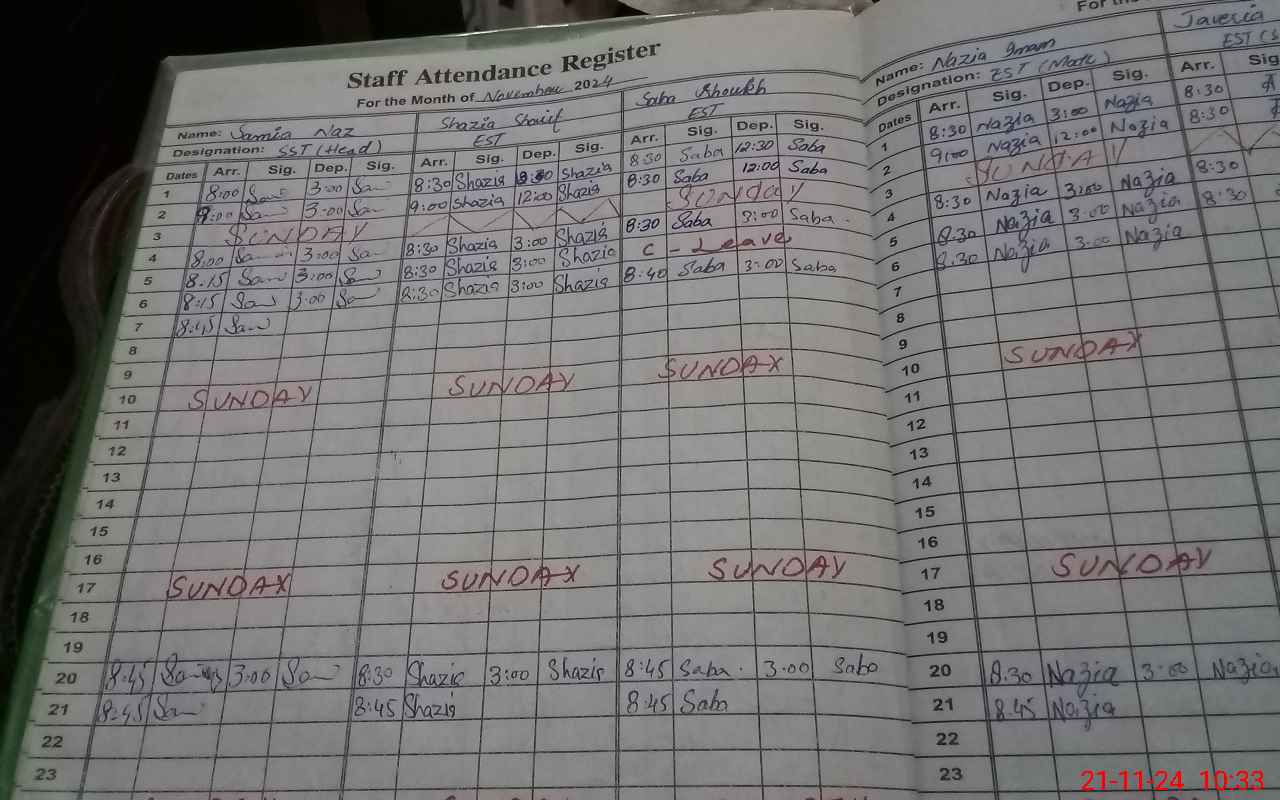 Staff Attendance Register
For the Month of November 2024
Name: Samia Naz Shazia Sharif Saba Shoukh
Designation: SST (Head) EST EST
Dates Arr. Sig. Dep. Sig. Arr. Sig. Dep. Sig. Arr. Sig. Dep. Sig.
1 8:00 Sam 3:00 Sam 8:30 Shazia Shazia 8:30 Saba 12:30 Saba
2 9:00 Sam 3:00 Sam 9:00 Shazia 12:00 Shazia 8:30 Saba 12:00 Saba
3 SUNDAY SUNDAY
4 8:00 Sam 3:00 Sam 8:30 Shazia 3:00 Shazia 8:30 Saba 3:00 Saba
5 8:15 Sam 3:00 Sam 8:30 Shazia 3:00 Shazia C - Leave
6 8:15 Sam 3:00 Sam 8:30 Shazia 3:00 Shazia 8:40 Saba 3:00 Saba
7 8:45 Sam
8
9
10 SUNDAY SUNDAY SUNDAY
11
12
13
14
15
16
17 SUNDAY SUNDAY SUNDAY
18
19
20 8:45 3:00 Sam 8:30 Shazia 3:00 Shazia 8:45 Saba 3:00 Saba
21 8:45 Sam 8:45 Shazia 8:45 Saba
22
23
For the
Name: Nazia Imam Javeria
Designation: EST (Math) EST (S
Dates Arr. Sig. Dep. Sig. Arr. Sig
1 8:30 Nazia 3:00 Nazia 8:30
2 9:00 Nazia 12:00 Nazia 8:30
3 SUNDAY
4 8:30 Nazia 3:00 Nazia 8:30
5 8:30 Nazia 3:00 Nazia 8:30
6 8:30 Nazia 3:00 Nazia
7
8
9
10 SUNDAY
11
12
13
14
15
16
17 SUNDAY
18
19
20 8:30 Nazia 3:00 Nazia
21 8:45 Nazia
22
23
21-11-24 10:33